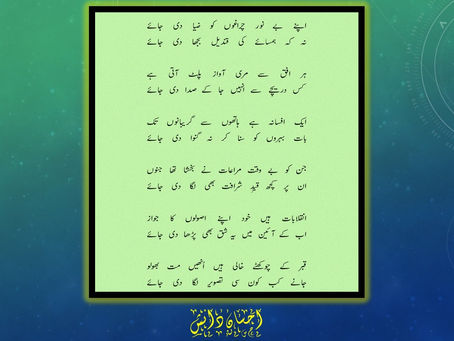 اپنے بے نور چراغوں کو ضیا دی جائے
نہ کہ ہمسائے کی قندیل بجھا دی جائے
ہر افق سے مری آواز پلٹ آتی ہے
کس دریچے سے انہیں جا کے صدا دی جائے
ایک افسانہ ہے ہاتھوں سے گریبانوں تک
بات بہروں کو سنا کر نہ گنوا دی جائے
جن کو بے وقت مراعات نے بخشا تھا جنوں
ان پر کچھ قیدِ شرافت بھی لگا دی جائے
انقلابات ہیں خود اپنے اصولوں کا جواز
اب کے آئین میں یہ شق بھی پڑھا دی جائے
قبر کے چوکھٹے خالی ہیں انھیں مت بھولو
جانے کب کون سی تصویر لگا دی جائے
احسان دانش